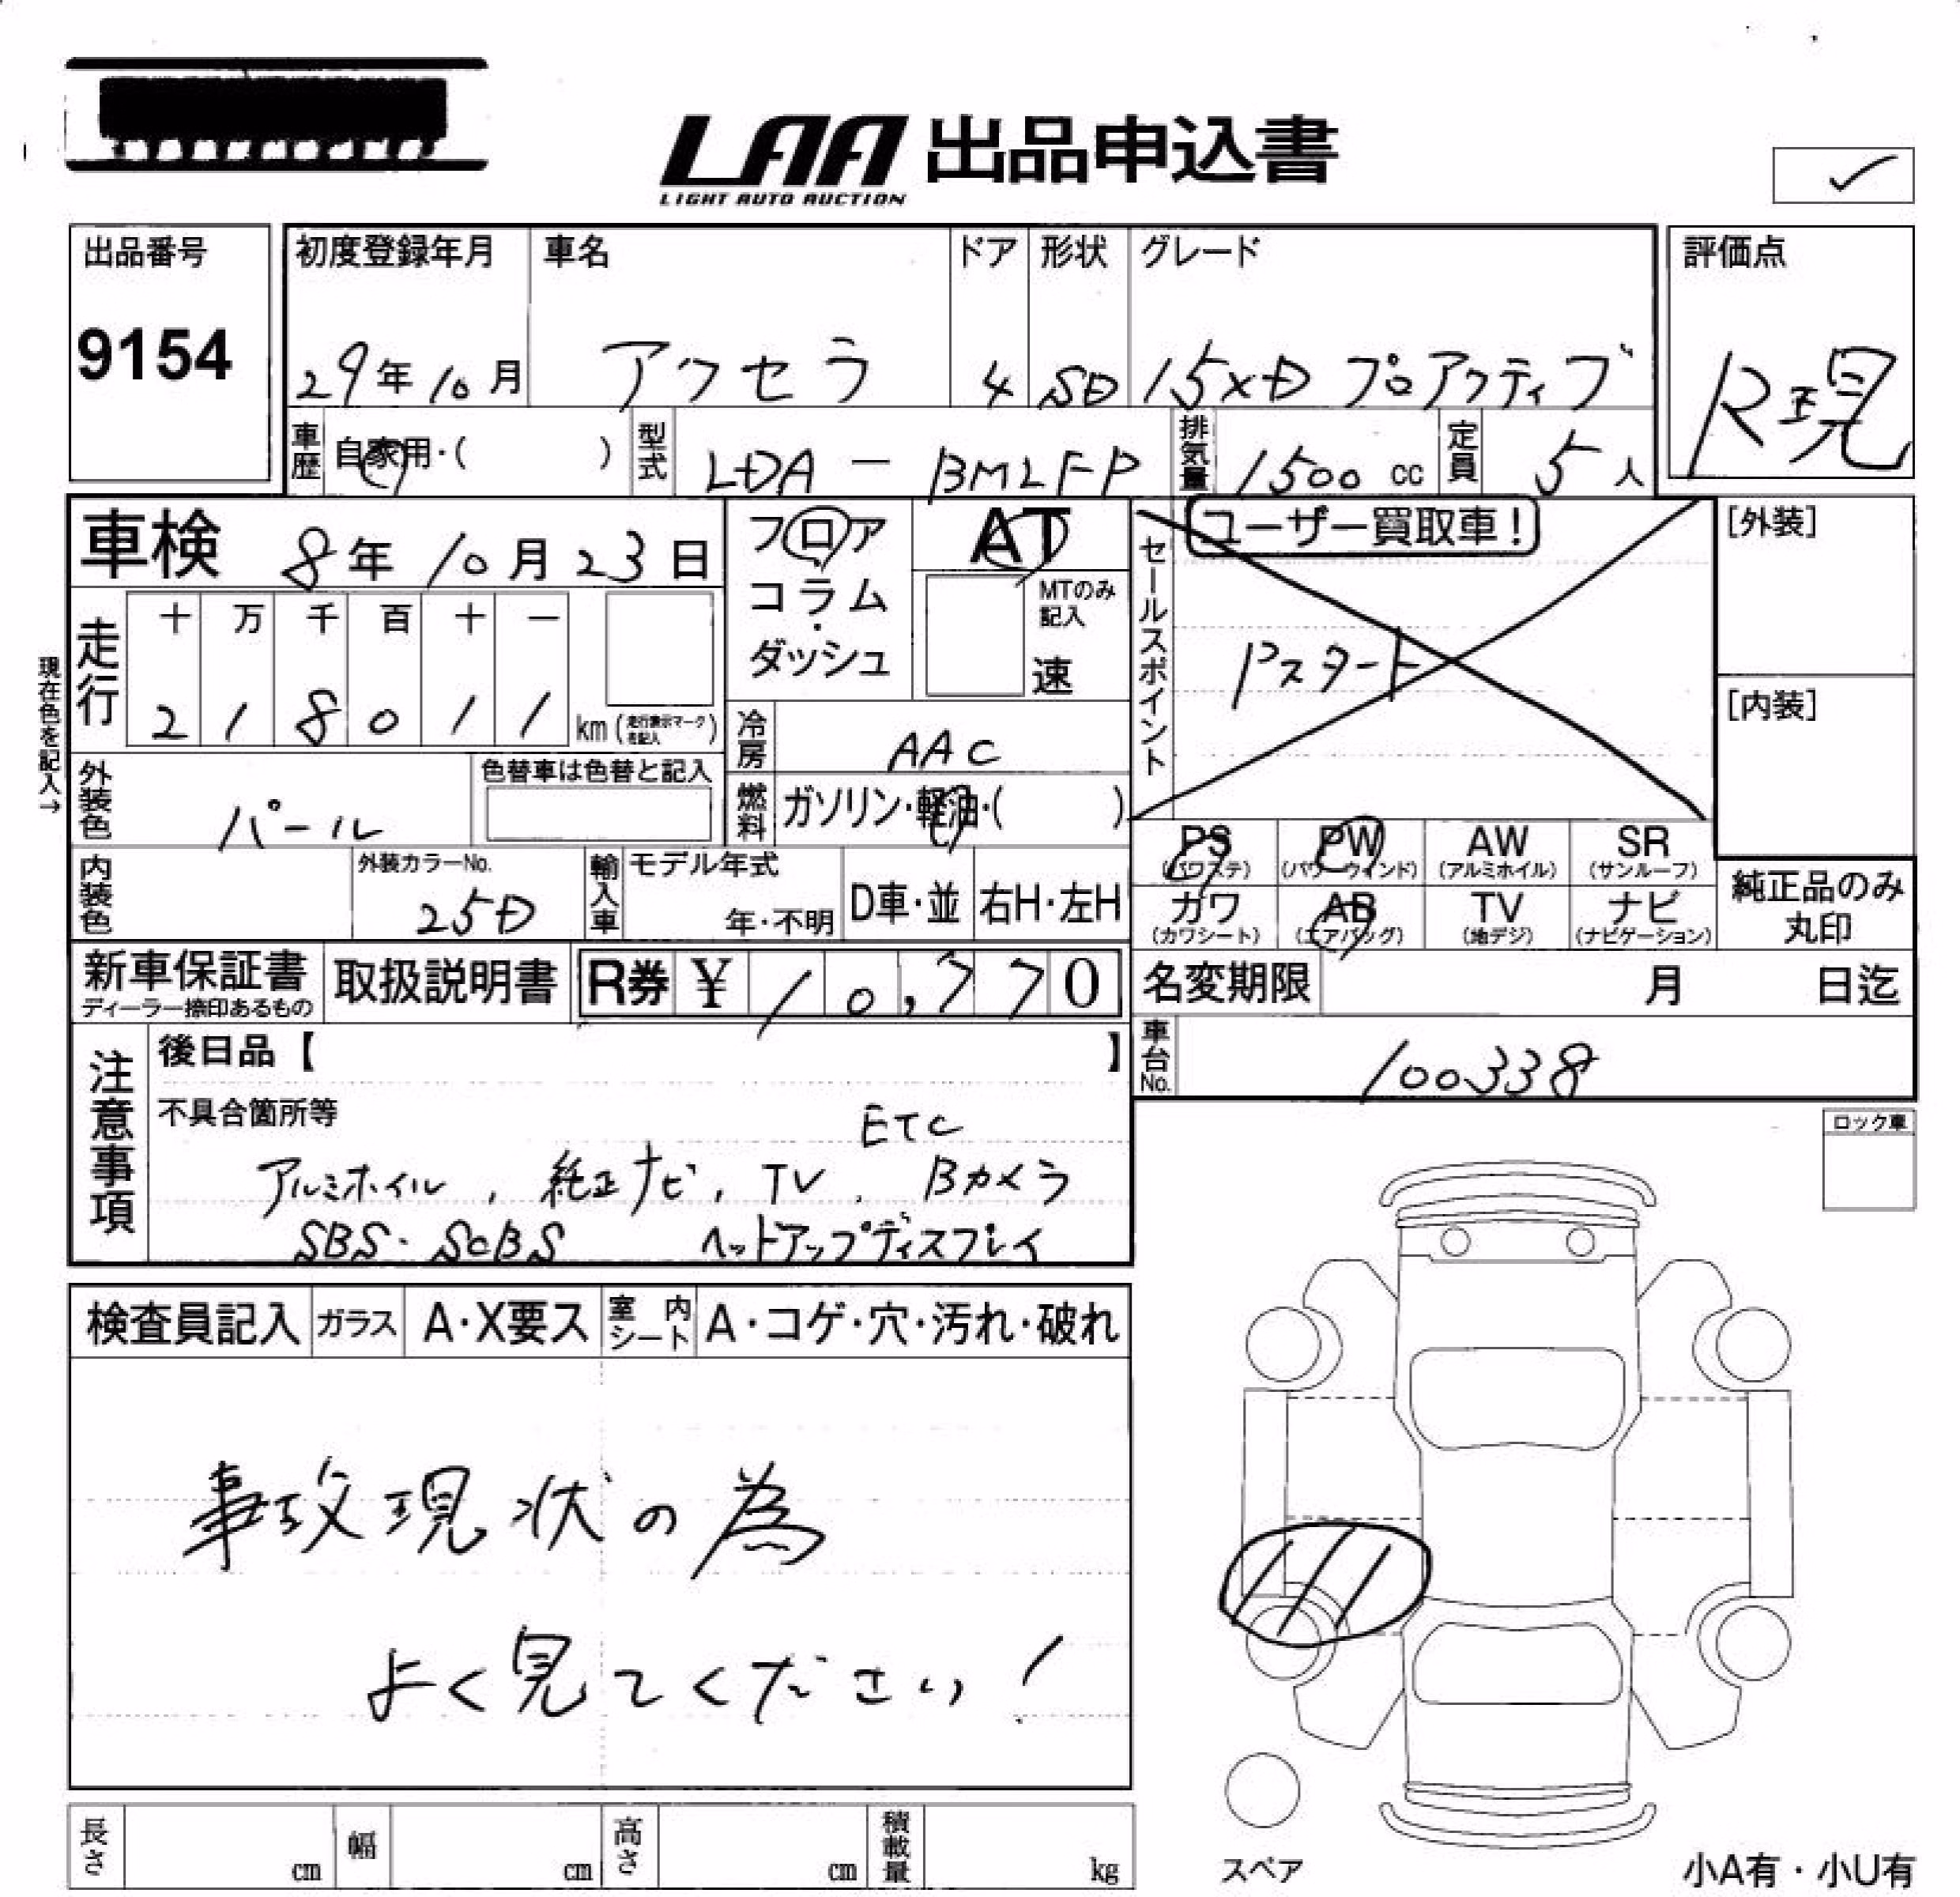 LAA 出品申込書
LIGHT AUTO AUCTION
出品番号
9154
初度登録年月
29年10月
車名
アクセラ
ドア
4
形状
SD
グレード
15XD プロアクティブ
評価点
R現
車歴
自家用・( )
型式
LDA-BMLFP
排気量
1500 cc
定員
5人
車検 8年10月23日
フロア
コラム
・
ダッシュ
AT
MTのみ
記入
速
セールスポイント
ユーザー買取車!
Pスタート
[外装]
[内装]
現在色を記入→
走行
十 万 千 百 十 一
2 1 8 0 1 1 km (走行表示マーク
を記入)
冷房
AAC
燃料
ガソリン・軽油・( )
外装色
パール
色替車は色替と記入
内装色
外装カラーNo.
25D
輸入車
モデル年式
年・不明
D車・並
右H・左H
PS
(パワステ)
PW
(パワーウィンド)
AW
(アルミホイル)
SR
(サンルーフ)
カワ
(カワシート)
AB
(エアバッグ)
TV
(地デジ)
ナビ
(ナビゲーション)
純正品のみ
丸印
新車保証書
ディーラー捺印あるもの
取扱説明書
R券 ¥10,770
名変期限 月 日迄
車台No.
100338
注意事項
後日品【 】
不具合箇所等
ETC
アルミホイル, 純正ナビ, TV, Bカメラ
SBS・SCBS ヘットアップディスプレイ
ロック車
検査員記入
ガラス
A・X要ス
室内
シート
A・コゲ・穴・汚れ・破れ
事故現状の為
よく見てください!
長さ cm
幅 cm
高さ cm
積載量 kg
スペア
小A有・小U有